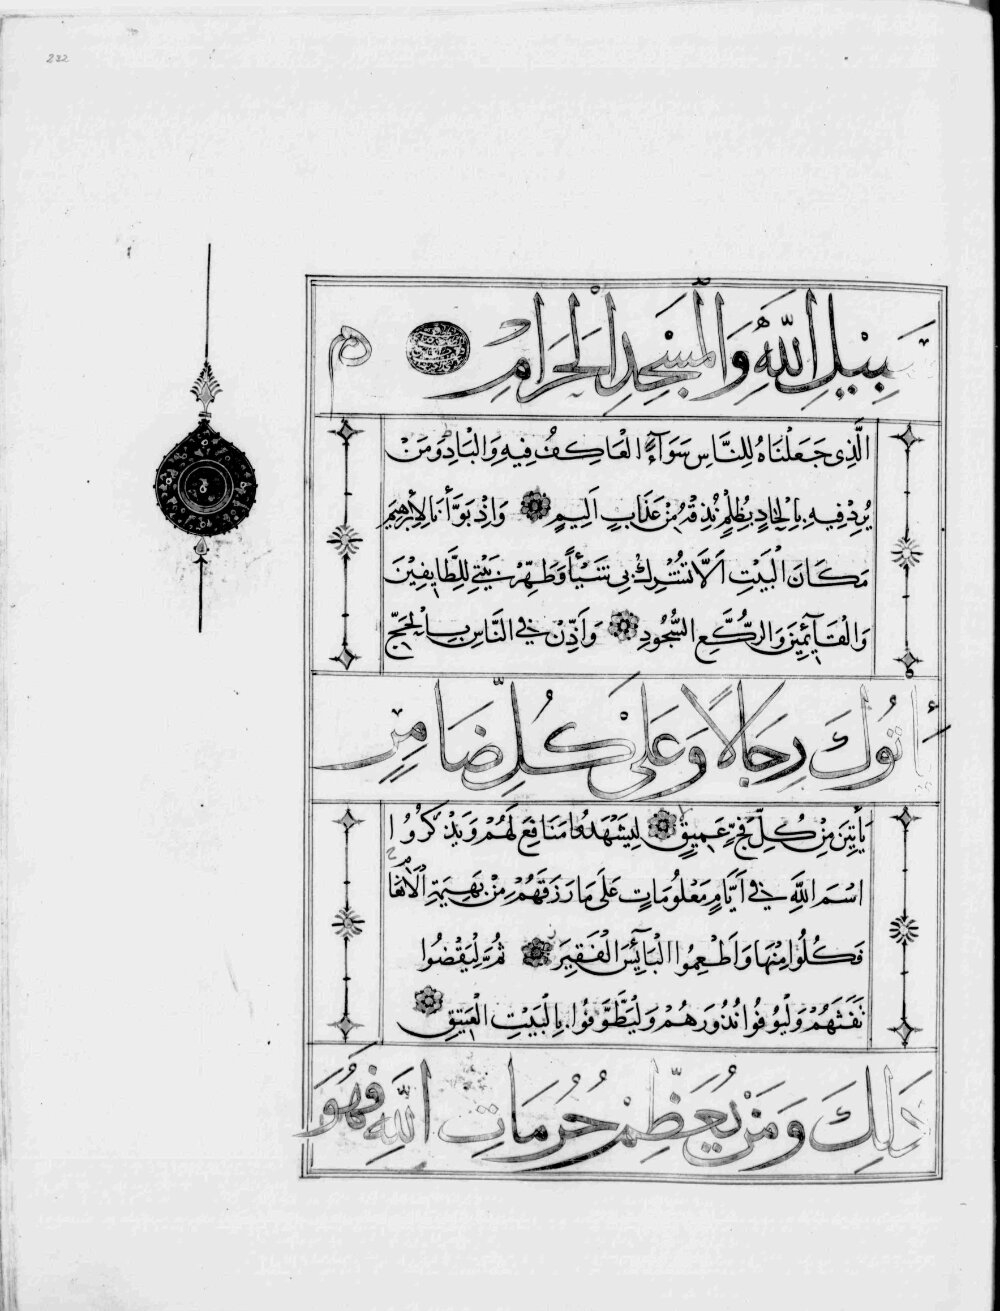 232
سَبِيلِ اللَّهِ وَالْمَسْجِدِ الْحَرَامِ
الَّذِى جَعَلْنَاهُ لِلنَّاسِ سَوَآءً الْعَاكِفُ فِيهِ وَالْبَادِ وَمَنْ
يُرِدْ فِيهِ بِاِلْحَادٍ بِظُلْمٍ نُذِقْهُ مِنْ عَذَابٍ اَلِيمٍ وَاِذْ بَوَّأْنَا لِاِبْرٰهِيمَ
مَكَانَ الْبَيْتِ اَلَّا تُشْرِكْ بِى شَيْـًٔا وَطَهِّرْ بَيْتِىَ لِلطَّائِفِينَ
وَالْقَآئِمِينَ وَالرُّكَّعِ السُّجُودِ وَاَذِّنْ فِى النَّاسِ بِالْحَجِّ
يَأْتُوكَ رِجَالًا وَعَلَى كُلِّ ضَامِرٍ
يَأْتِينَ مِنْ كُلِّ فَجٍّ عَمِيقٍ لِيَشْهَدُوا مَنَافِعَ لَهُمْ وَيَذْكُرُوا
اسْمَ اللَّهِ فِى اَيَّامٍ مَعْلُومَاتٍ عَلَى مَا رَزَقَهُمْ مِنْ بَهِيمَةِ الْاَنْعَامِ
فَكُلُوا مِنْهَا وَاَطْعِمُوا الْبَآئِسَ الْفَقِيرَ ثُمَّ لِيَقْضُوا
تَفَثَهُمْ وَلْيُوفُوا نُذُورَهُمْ وَلْيَطَّوَّفُوا بِالْبَيْتِ الْعَتِيقِ
ذَلِكَ وَمَنْ يُعَظِّمْ حُرُمَاتِ اللَّهِ فَهُوَ